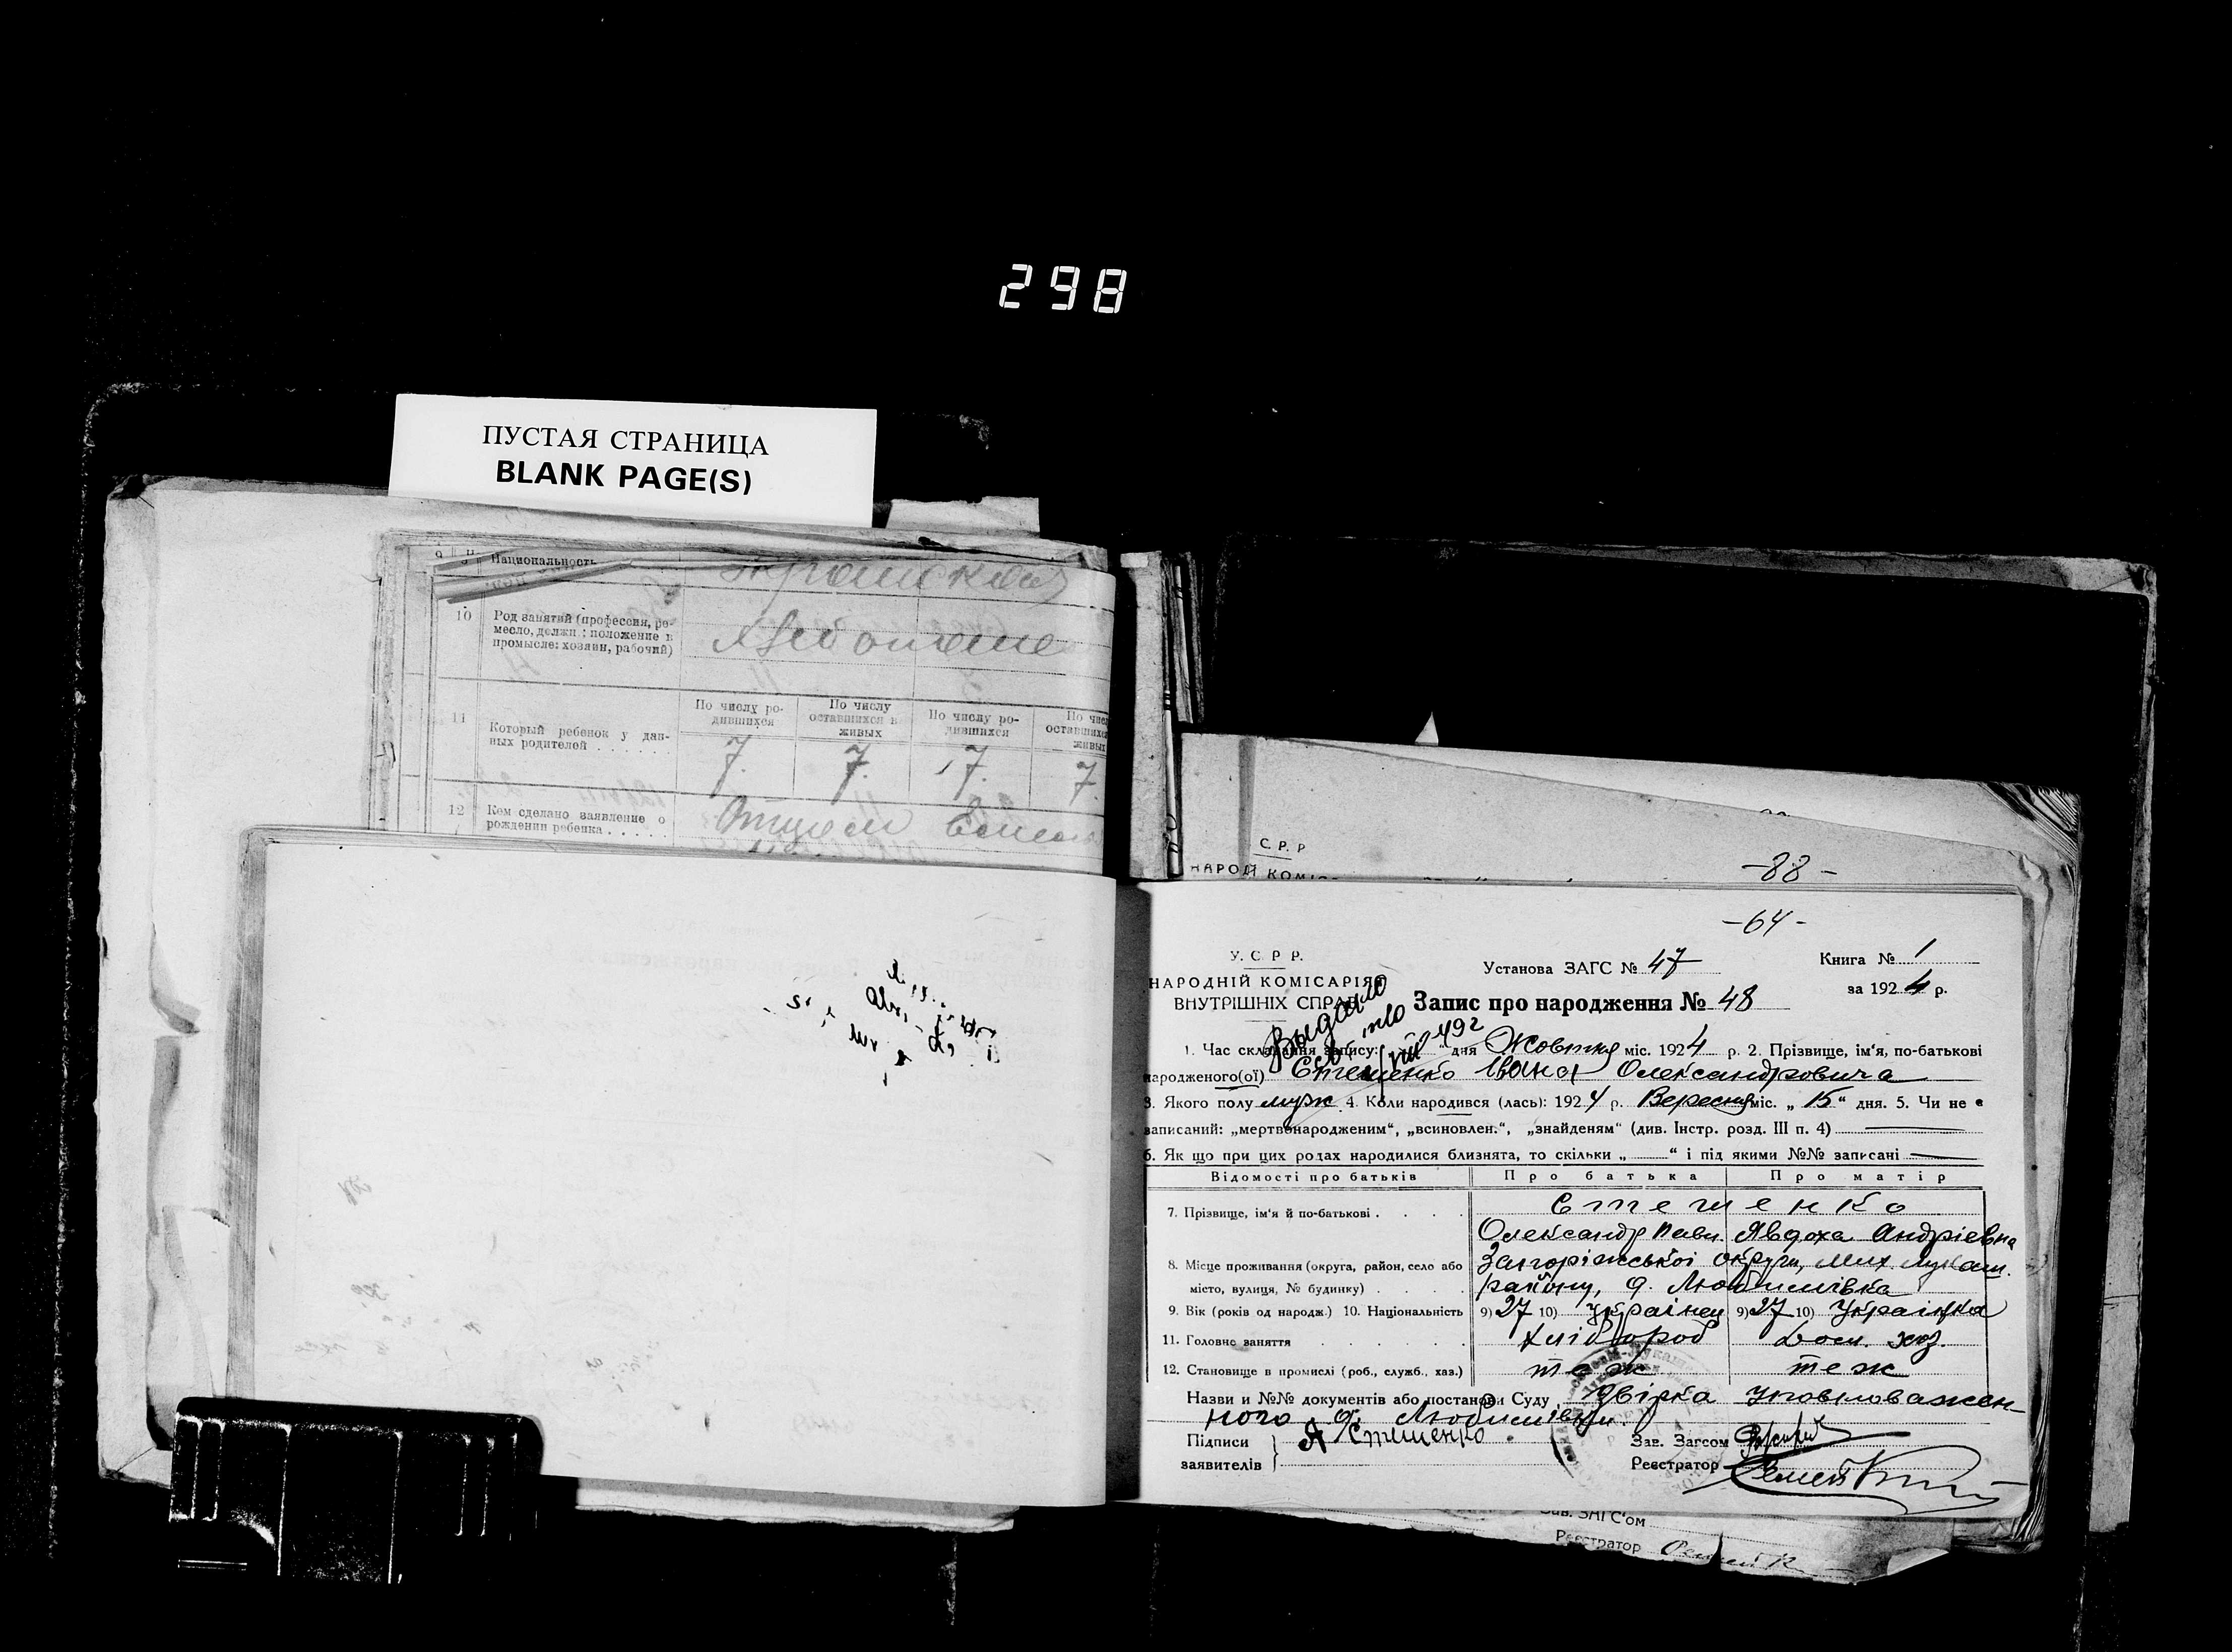 298
ПУСТАЯ СТРАНИЦА
BLANK PAGE(S)
9 Национальность
10 Род занятий (профессия, ре-
месло, должн.; положение в
промысле: хозяин, рабочий)
11 Который ребенок у дан-
ных родителей . . . . . .
По числу ро-
дившихся
По числу
оставшихся в
живых
По числу ро-
дившихся
По числ
оставшихся
живых
7. 7. 7. 7.
12 Кем сделано заявление о
рождении ребенка . . . . .
Отцом
С. Р. Р
НАРОД КОМІ
-88-
-64-
У. С. Р. Р.
НАРОДНІЙ КОМІСАРІЯ
ВНУТРІШНІХ СПРАВ
Установа ЗАГС № 47
Книга № 1
за 1924 р.
Запис про народження № 48
Выдано
1. Час складання запису: дня Жовтня міс. 1924 р. 2. Прізвище, ім'я, по-батькові
народженого(ої) Стешенко Івана Олександровича
3. Якого полу муж. 4. Коли народився (лась): 1924 р. Вересня міс. „ 15 “ дня. 5. Чи не є
записаний: „мертвонародженим“, „всиновлен.“, „знайденям“ (див. Інстр. розд. III п. 4)
6. Як що при цих родах народилися близнята, то скільки „ “ і під якими №№ записані
Відомості про батьків Про батька Про матір
7. Прізвище, ім'я й по-батькові . . . . Стешенко
Олександр Павл. Явдоха Андріевна
8. Місце проживання (округа, район, село або Запоріжської округи, Мих Лукаш.
місто, вулиця, № будинку) . . . . району, с. Любимівка
9. Вік (років од народж.) 10. Національність 9) 27 10) Українец 9) 27 10) Українка
11. Головне заняття . . . . . хлібороб Дом. хоз.
12. Становище в промислі (роб., служб., хаз.) теж теж
Назви и №№ документів або постанови Суду Довірка уповноважен-
ного с. Любимівки.
Підписи
заявителів
А Стешенко
Зав. Загсом
Реєстратор
Зав. ЗАГС'ом
Реєстратор